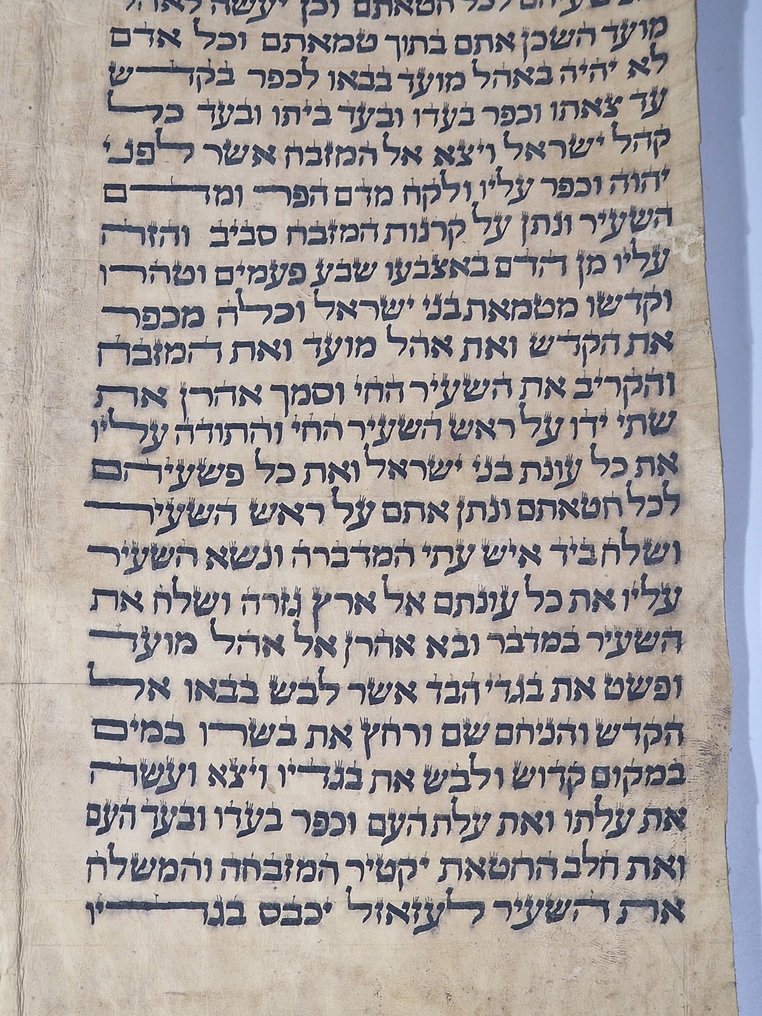 לכל חטאתם וכן יעשה לאהל
מועד השכן אתם בתוך טמאתם וכל אדם
לא יהיה באהל מועד בבאו לכפר בקדש
עד צאתו וכפר בעדו ובעד ביתו ובעד כל
קהל ישראל ויצא אל המזבח אשר לפני
יהוה וכפר עליו ולקח מדם הפר ומדם
השעיר ונתן על קרנות המזבח סביב והזה
עליו מן הדם באצבעו שבע פעמים וטהרו
וקדשו מטמאת בני ישראל וכלה מכפר
את הקדש ואת אהל מועד ואת המזבח
והקריב את השעיר החי וסמך אהרן את
שתי ידו על ראש השעיר החי והתודה עליו
את כל עונת בני ישראל ואת כל פשעיהם
לכל חטאתם ונתן אתם על ראש השעיר
ושלח ביד איש עתי המדברה ונשא השעיר
עליו את כל עונתם אל ארץ גזרה ושלח את
השעיר במדבר ובא אהרן אל אהל מועד
ופשט את בגדי הבד אשר לבש בבאו אל
הקדש והניחם שם ורחץ את בשרו במים
במקום קדוש ולבש את בגדיו ויצא ועשה
את עלתו ואת עלת העם וכפר בעדו ובעד העם
ואת חלב החטאת יקטיר המזבחה והמשלח
את השעיר לעזאזל יכבס בגדיו